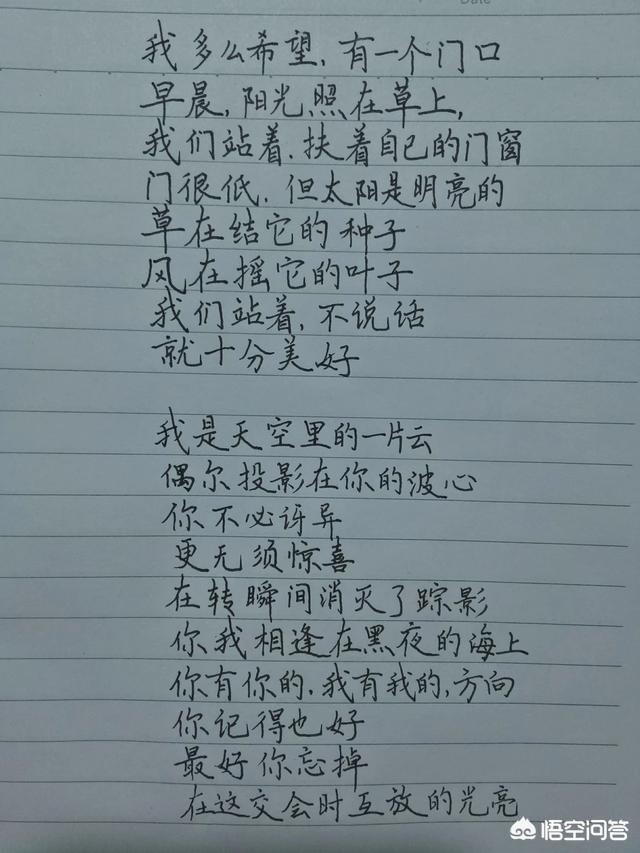 Date
我多么希望，有一个门口
早晨，阳光照在草上，
我们站着，扶着自己的门窗
门很低，但太阳是明亮的
草在结它的种子
风在摇它的叶子
我们站着，不说话
就十分美好
我是天空里的一片云
偶尔投影在你的波心
你不必讶异
更无须惊喜
在转瞬间消灭了踪影
你我相逢在黑夜的海上
你有你的，我有我的，方向
你记得也好
最好你忘掉
在这交会时互放的光亮
悟空问答